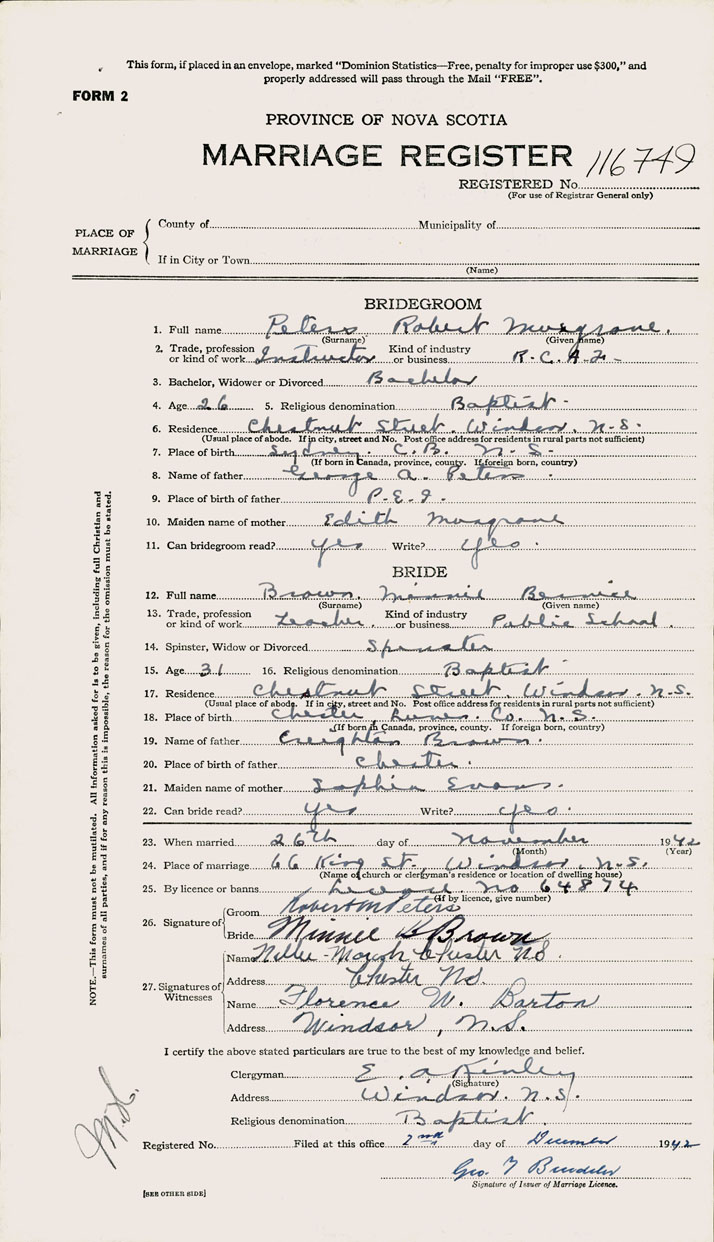 This form, if placed in an envelope, marked "Dominion Statistics—Free, penalty for improper use $300," and
properly addressed will pass through the Mail "FREE".
FORM 2
PROVINCE OF NOVA SCOTIA
MARRIAGE REGISTER 116749
REGISTERED No.
(For use of Registrar General only)
PLACE OF MARRIAGE
County of Municipality of
If in City or Town
(Name)
BRIDEGROOM
1. Full name Peters Robert Musgrave.
(Surname) (Given name)
2. Trade, profession or kind of work Instructor Kind of industry or business R.C.A.F.
3. Bachelor, Widower or Divorced Bachelor
4. Age 26 5. Religious denomination Baptist
6. Residence Chestnut Street, Windsor, N.S.
(Usual place of abode. If in city, street and No. Post office address for residents in rural parts not sufficient)
7. Place of birth Sydney. C.B. N.S.
(If born in Canada, province, county. If foreign born, country)
8. Name of father George A. Peters
9. Place of birth of father P.E.I.
10. Maiden name of mother Edith Musgrave
11. Can bridegroom read? yes Write? yes.
BRIDE
12. Full name Brown. Minnie Bernice
(Surname) (Given name)
13. Trade, profession or kind of work Teacher. Kind of industry or business Public School.
14. Spinster, Widow or Divorced Spinster
15. Age 31 16. Religious denomination Baptist
17. Residence Chestnut Street, Windsor. N.S.
(Usual place of abode. If in city, street and No. Post office address for residents in rural parts not sufficient)
18. Place of birth Chester, Lunen. Co. N.S.
(If born in Canada, province, county. If foreign born, country)
19. Name of father Creighton Brown.
20. Place of birth of father Chester.
21. Maiden name of mother Sophia Evans.
22. Can bride read? yes Write? yes.
23. When married 26th day of November 1942
(Month) (Year)
24. Place of marriage 66 King St. Windsor, N.S.
(Name of church or clergyman's residence or location of dwelling house)
25. By licence or banns License No 64874
(If by licence, give number)
26. Signature of
Groom Robert M Peters
Bride Minnie B Brown
27. Signatures of Witnesses
Name Nellie Marsh Chester NS.
Address Chester NS.
Name Florence W. Barton
Address Windsor, N.S.
I certify the above stated particulars are true to the best of my knowledge and belief.
Clergyman E. A Kinley
(Signature)
Address Windsor. N.S.
Religious denomination Baptist.
Registered No. Filed at this office 2nd day of December 1942
Geo.
Signature of Issuer of Marriage Licence.
[SEE OTHER SIDE]
NOTE.—This form must not be mutilated. All information asked for is to be given, including full Christian and
surnames of all parties, and if for any reason this is impossible, the reason for the omission must be stated.